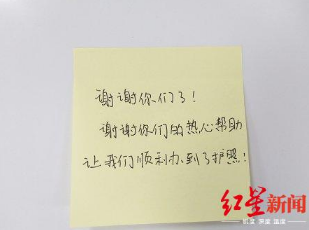 谢谢你们了！
谢谢你们的热心帮助
让我们顺利办到了护照！
红星新闻